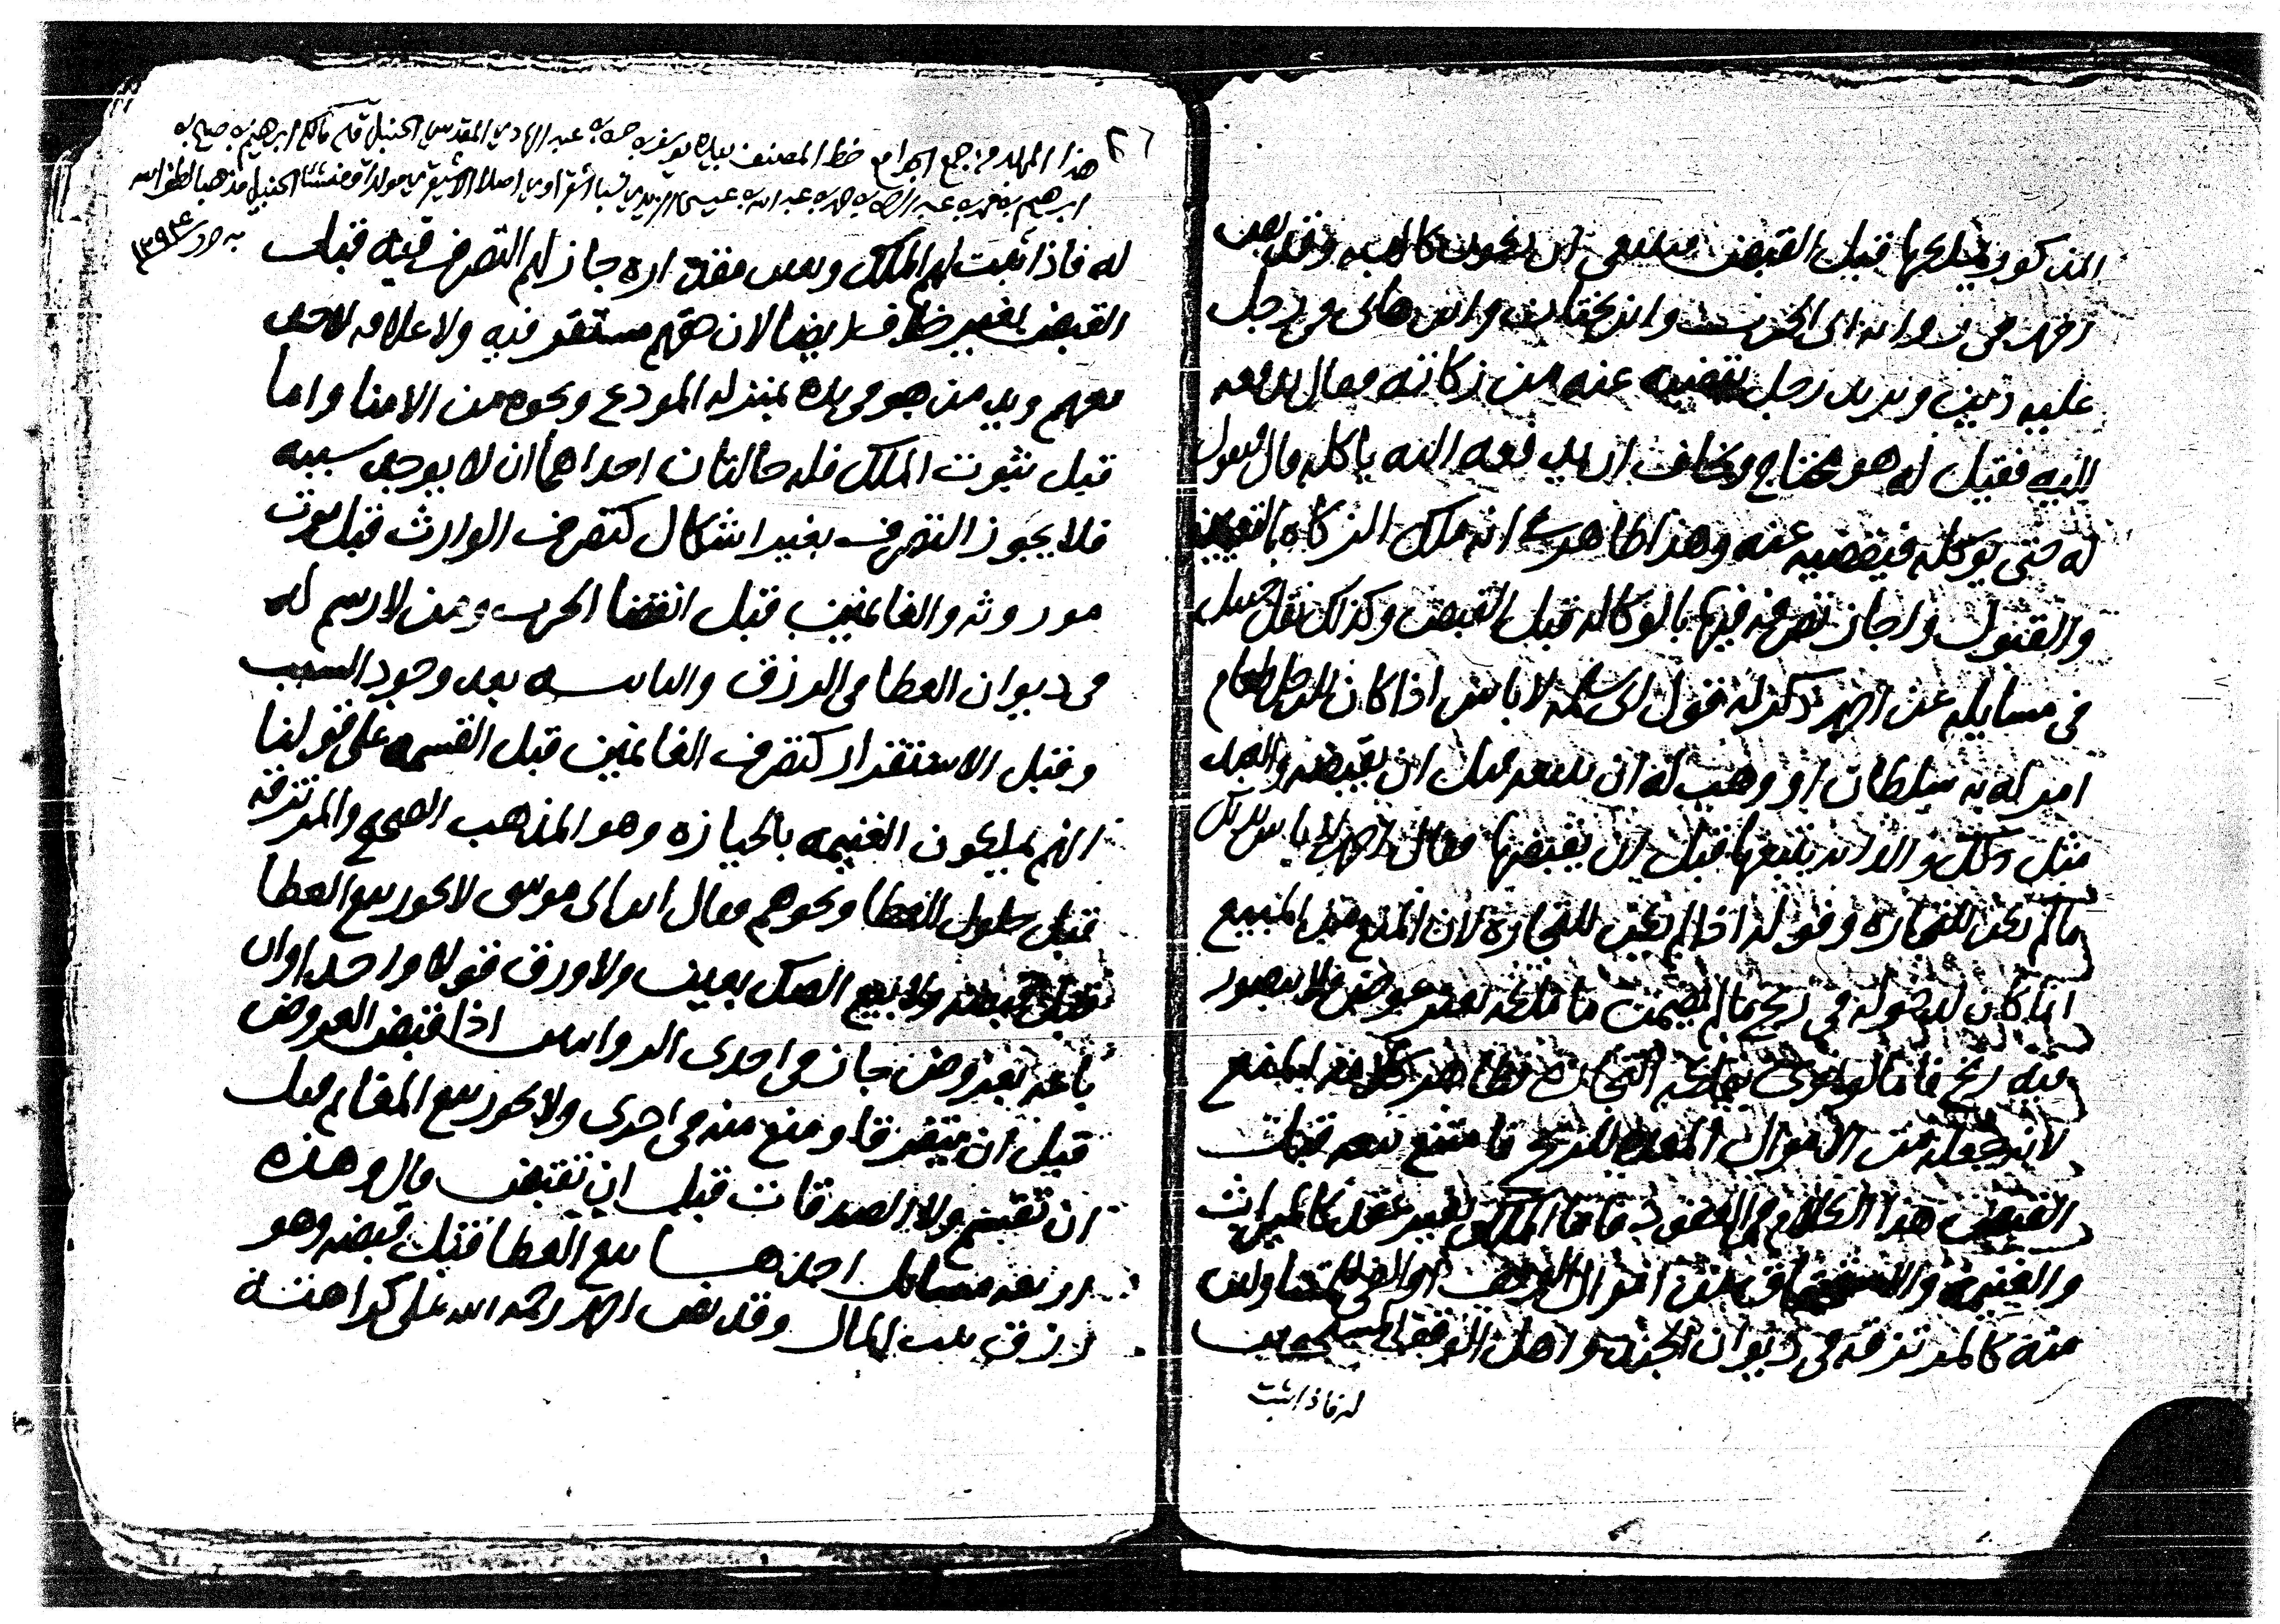 المذكور يملكها قبل القبض فينبغي ان يكون كالهبه وقد نص
احمد في روايه ابى الحرث وابن بختان وابن هانى في رجل
عليه دين ويريد رجل يقضيه عنه من زكاته فقال يدفعه
اليه فقيل له هو محتاج ويخاف ان يدفعه اليه ياكله قال يقول
له حتى يوكله فيقضيه عنه وهذا ظاهر في انه ملك الزكاه بالتعيين
والقبول واجاز تصرفه فيها بالوكاله قبل القبض وكذلك نقل حنبل
في مسايله عن احمد ذكر له قول ابى سلمه لا باس اذا كان للرجل طعام
امر له به سلطان او وهب له ان يبيعه قبل ان يقبضه والعبد
مثل ذلك والدابه يبيعها قبل ان يقبضها فقال احمد لا باس بذلك
ما لم يكن للتجاره وقوله اذا لم يكن للتجاره لان المبيع
انما كان لدخوله في ربح ما لم يضمن ما ملكه بغير عوض فلا يتصور
فيه ربح فاما التجاره فظاهر كلامه المنع
لانه جعله من الاموال المعده للربح فامتنع بيعه قبل
القبض هذا الكلام في العقود فاما الملك بغير عقد كالميراث
والغنيمه والاستحقاق من اموال الوقف او الفي للمتناولين
منه كالمرتزقه في ديوان الجند واهل الوقف
له فاذا ثبت
٢٦
هذا المجلد من جمع الجوامع خط المصنف بيده يوسف بن حسن بن عبد الهادي المقدسي الحنبلي قاله مالكه ابراهيم بن صالح بن
ابراهيم بن محمد بن عبد الرحمن بن حمد بن عبد الله بن عيسى
١٣٩٣
له فاذا ثبت لهم الملك وتعين مقداره جاز لهم التصرف فيه قبل
القبض بغير خلاف ايضا لان حقهم مستقر فيه ولا علاقه لاحد
معهم ويد من هو في يده بمنزله المودع ونحوه من الامنا واما
قبل ثبوت الملك فله حالتان احداهما ان لا يوجد سببه
فلا يجوز التصرف بغير اشكال كتصرف الوارث قبل موت
موروثه والغانمين قبل انقضا الحرب ومن لا رسم له
في ديوان العطا في الرزق والثانيه بعد وجود السبب
وقبل الاستقرار كتصرف الغانمين قبل القسمه على قولنا
انهم يملكون الغنيمه بالحيازه وهو المذهب الصحيح والمرتزقه
قبل حلول العطا ونحوهم فقال ابن ابى موسى لا يجوز بيع العطا
قبل قبضه ولا بيع الصك بعين ولا ورق قولا واحدا وان
باعه بعروض جاز في احدى الروايتين اذا قبض العروض
قبل ان يتفرقا ومنع منه في احدى ولا يجوز بيع المغانم قبل
ان تقسم ولا الصدقات قبل ان تقبض قال وهذه
اربعه مسايل احدها بيع العطا قبل قبضه وهو
رزق بيت المال وقد نص احمد رحمه الله على كراهته